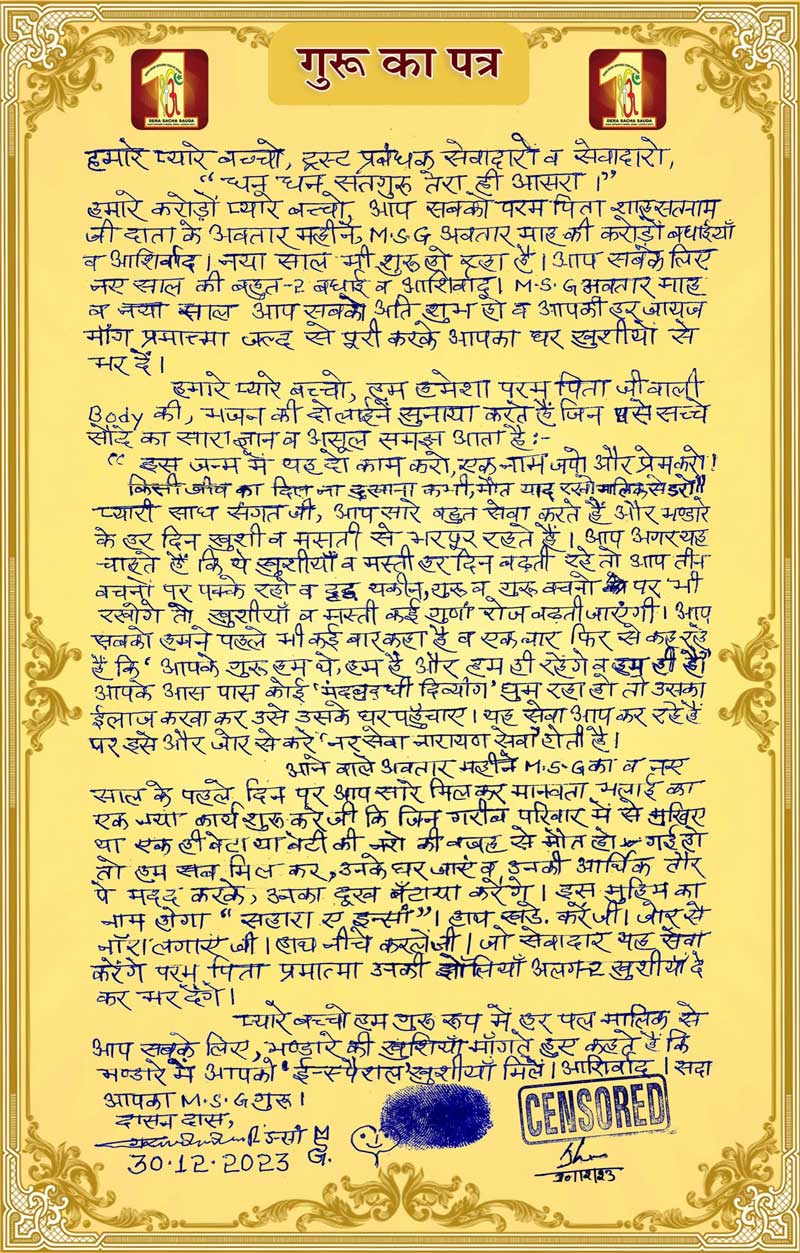 गुरू का पत्र
DERA SACHA SAUDA
DERA SACHA SAUDA
हमारे प्यारे बच्चो, ट्रस्ट प्रबंधक सेवादारो व सेवादारो,
“धन धन सतगुरु तेरा ही आसरा।”
हमारे करोड़ों प्यारे बच्चो, आप सबको परम पिता शाह सतनाम
जी दाता के अवतार महीने, M.S.G अवतार माह की करोड़ों बधाईयाँ
व आशिर्वाद। नया साल भी शुरू हो रहा है। आप सबके लिए
नए साल की बहुत-2 बधाई व आशिर्वाद। M.S.G अवतार माह
व नया साल आप सबको अति शुभ हो व आपकी हर जायज
मांग प्रमात्मा जल्द से पूरी करके आपका घर खुशीयों से
भर दें।
हमारे प्यारे बच्चो, हम हमेशा परम पिता जी वाली
Body की, भजन की दो लाईनें सुनाया करते हैं जिन से सच्चे
सौदे का सारा ज्ञान व असूल समझ आता है:-
“इस जन्म में यह दो काम करो, एक नाम जपो और प्रेम करो!
किसी जीव का दिल ना दुखाना कभी, मौत याद रखो मालिक से डरो"
प्यारी साध संगत जी, आप सारे बहुत सेवा करते हैं और भण्डारे
के हर दिन खुशी व मस्ती से भरपूर रहते हैं। आप अगर यह
चाहते हैं कि ये खुशीयाँ व मस्ती हर दिन बढ़ती रहे तो आप तीन
वचनों पर पक्के रहो व दृढ़ यकीन, गुरू व गुरू वचनों पर भी
रखोगे तो खुशीयाँ व मस्ती कई गुणा रोज बढ़ती जाएंगी। आप
सबको हमने पहले भी कई बार कहा है व एक बार फिर से कह रहे
हैं कि ‘आपके गुरू हम थे, हम हैं और हम ही रहेंगे व हम ही हैं।’
आपके आस पास कोई ‘मंदबुद्धी दिव्यांग’ घुम रहा हो तो उसका
ईलाज करवा कर उसे उसके घर पहुँचाए। यह सेवा आप कर रहे हैं
पर इसे और जोर से करें ‘नर सेवा नारायण सेवा’ होती है।
आने वाले अवतार महीने M.S.G का व नए
साल के पहले दिन पर आप सारे मिलकर मानवता भलाई का
एक नया कार्य शुरू करें जी कि जिन गरीब परिवार में से मुखिए
या एक ही बेटा या बेटी की नशे की वजह से मौत हो गई हो
तो हम सब मिल कर, उनके घर जाएं व उनकी आर्थिक तौर
पे मदद करके, उनका दुख बँटाया करेंगे। इस मुहिम का
नाम होगा “सहारा ए इन्सां”। हाथ खड़े करें जी। जोर से
नॉरा लगाए जी। हाथ नीचे करलें जी। जो सेवादार यह सेवा
करेंगे परम पिता प्रमात्मा उनकी झोलियाँ अलग-2 खुशीयाँ दे
कर भर देंगे।
प्यारे बच्चो हम गुरू रूप में हर पल मालिक से
आप सबके लिए, भण्डारे की खुशियाँ माँगते हुए कहते हैं कि
भण्डारे में आपको ‘ईन्स्पैशल’ खुशीयाँ मिलें। आशिर्वाद। सदा
आपका M.S.G गुरू।
दासन दास,
इन्सां M
G.
30.12.2023
CENSORED
30/12/23